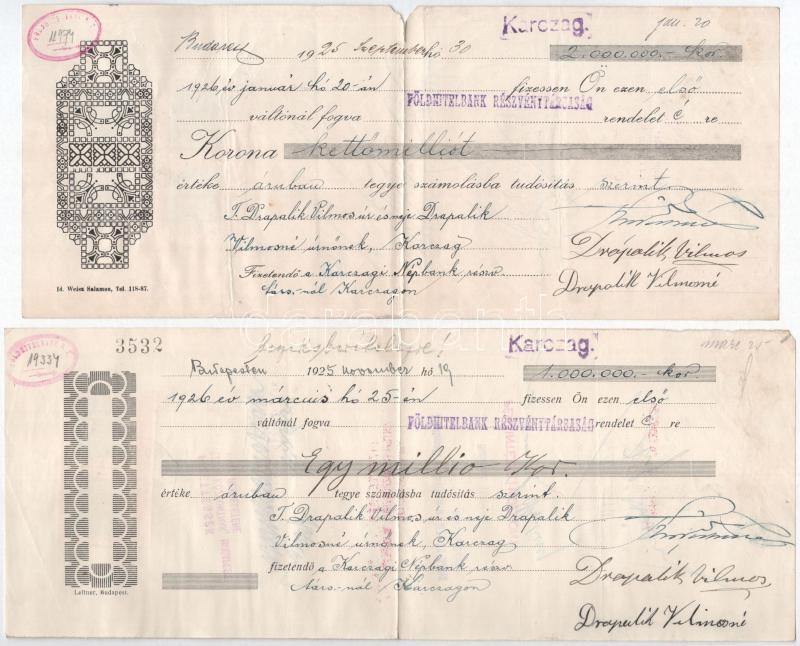 Karczag.
jan. 20
11499
Budapest 1925 Szeptember hó 30
2.000.000.- kor.
1926 év január hó 20-án fizessen Ön ezen első
váltónál fogva FÖLDHITELBANK RÉSZVÉNYTÁRSASÁG rendelet é re
Korona kettőmilliót
értéke áruban tegye számolásba tudósitás szerint.
T. Drapalik Vilmos úr és neje Drapalik
Vilmosné úrnőnek, Karczag
Fizetendő a Karczagi Népbank részv.
társ.-nál Karczagon
Drapalik Vilmos
Drapalik Vilmosné
Id. Weisz Salamon, Tel. 118-87.
19334
3532
Karczag.
Budapesten 1925 november hó 19
1.000.000.- kor
1926 év március hó 25-én fizessen Ön ezen első
váltónál fogva FÖLDHITELBANK RÉSZVÉNYTÁRSASÁG rendelet é re
Egy millio Kor.
értéke áruban tegye számolásba tudósitás szerint.
T. Drapalik Vilmos úr és neje Drapalik
Vilmosné úrnőnek, Karczag
fizetendő a Karczagi Népbank részv
társ.-nál Karczagon
Drapalik Vilmos
Drapalik Vilmosné
Leitner, Budapest.